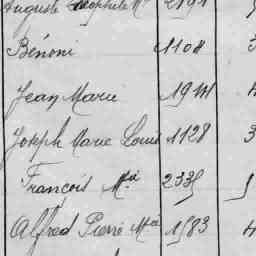 Auguste Théophile M. 2191
Bénoni 1108 3
Jean Marie 1941 4
Joseph Marie Louis 1128 3
François Mie 2335
Alfred Pierre Mie 1583 4